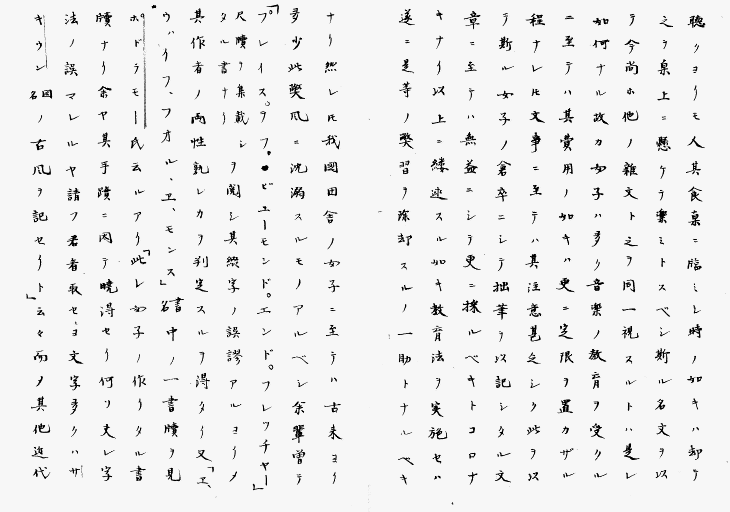 聴クヨリモ人其食桌ニ臨ミシ時ノ如キハ却テ
之ヲ桌上ニ懸ケテ楽ミトスベシ斯ル名文ヲ以
テ今尚ホ他ノ雑文ト之ヲ同一視スルトハ是レ
如何ナル政カ女子ハ多ク音楽ノ教育ヲ受クル
ニ至テハ其費用ノ如キハ更ニ定限ヲ置カザル
程ナレ𪜈文事ニ至テハ其注意甚乏シク此ヲ以
テ斯ル女子ノ倉卒ニシテ拙筆ヲ以記シタル文
章ニ至テハ無益ニシテ更ニ採ルベキトコロナ
キナリ以上ニ縷述スル如キ教育法ヲ実施セハ
遂ニ是等ノ獘習ヲ除却スルノ一助トナルベキ
ナリ然レ𪜈我國田舎ノ女子ニ至テハ古来ヨリ
多少此獘風ニ沈溺スルモノアルベシ余輩曽テ
「プレイス。ヲフ。ビューモンド。エンド。フレッチャー」
尺牘ヲ集載シ
タル書ナリ
ヲ閲シ其綴字ノ誤謬アルヨリメ
其作者ノ両性孰レカヲ判定スルヲ得タリ又「ヱ、
ウハイフ、フオル、ヱ、モンス」書名中ノ一書牘ヲ見
ポドラモー氏云ルアリ「此レ女子ノ作リタル書
牘ナリ余ヤ其手蹟ニ因テ暁得セリ何ソ夫レ字
法ノ誤マレルヤ請フ君看取セヨ文字多クハサ
キソン国名ノ古風ヲ記セリト」云々而メ其他近代